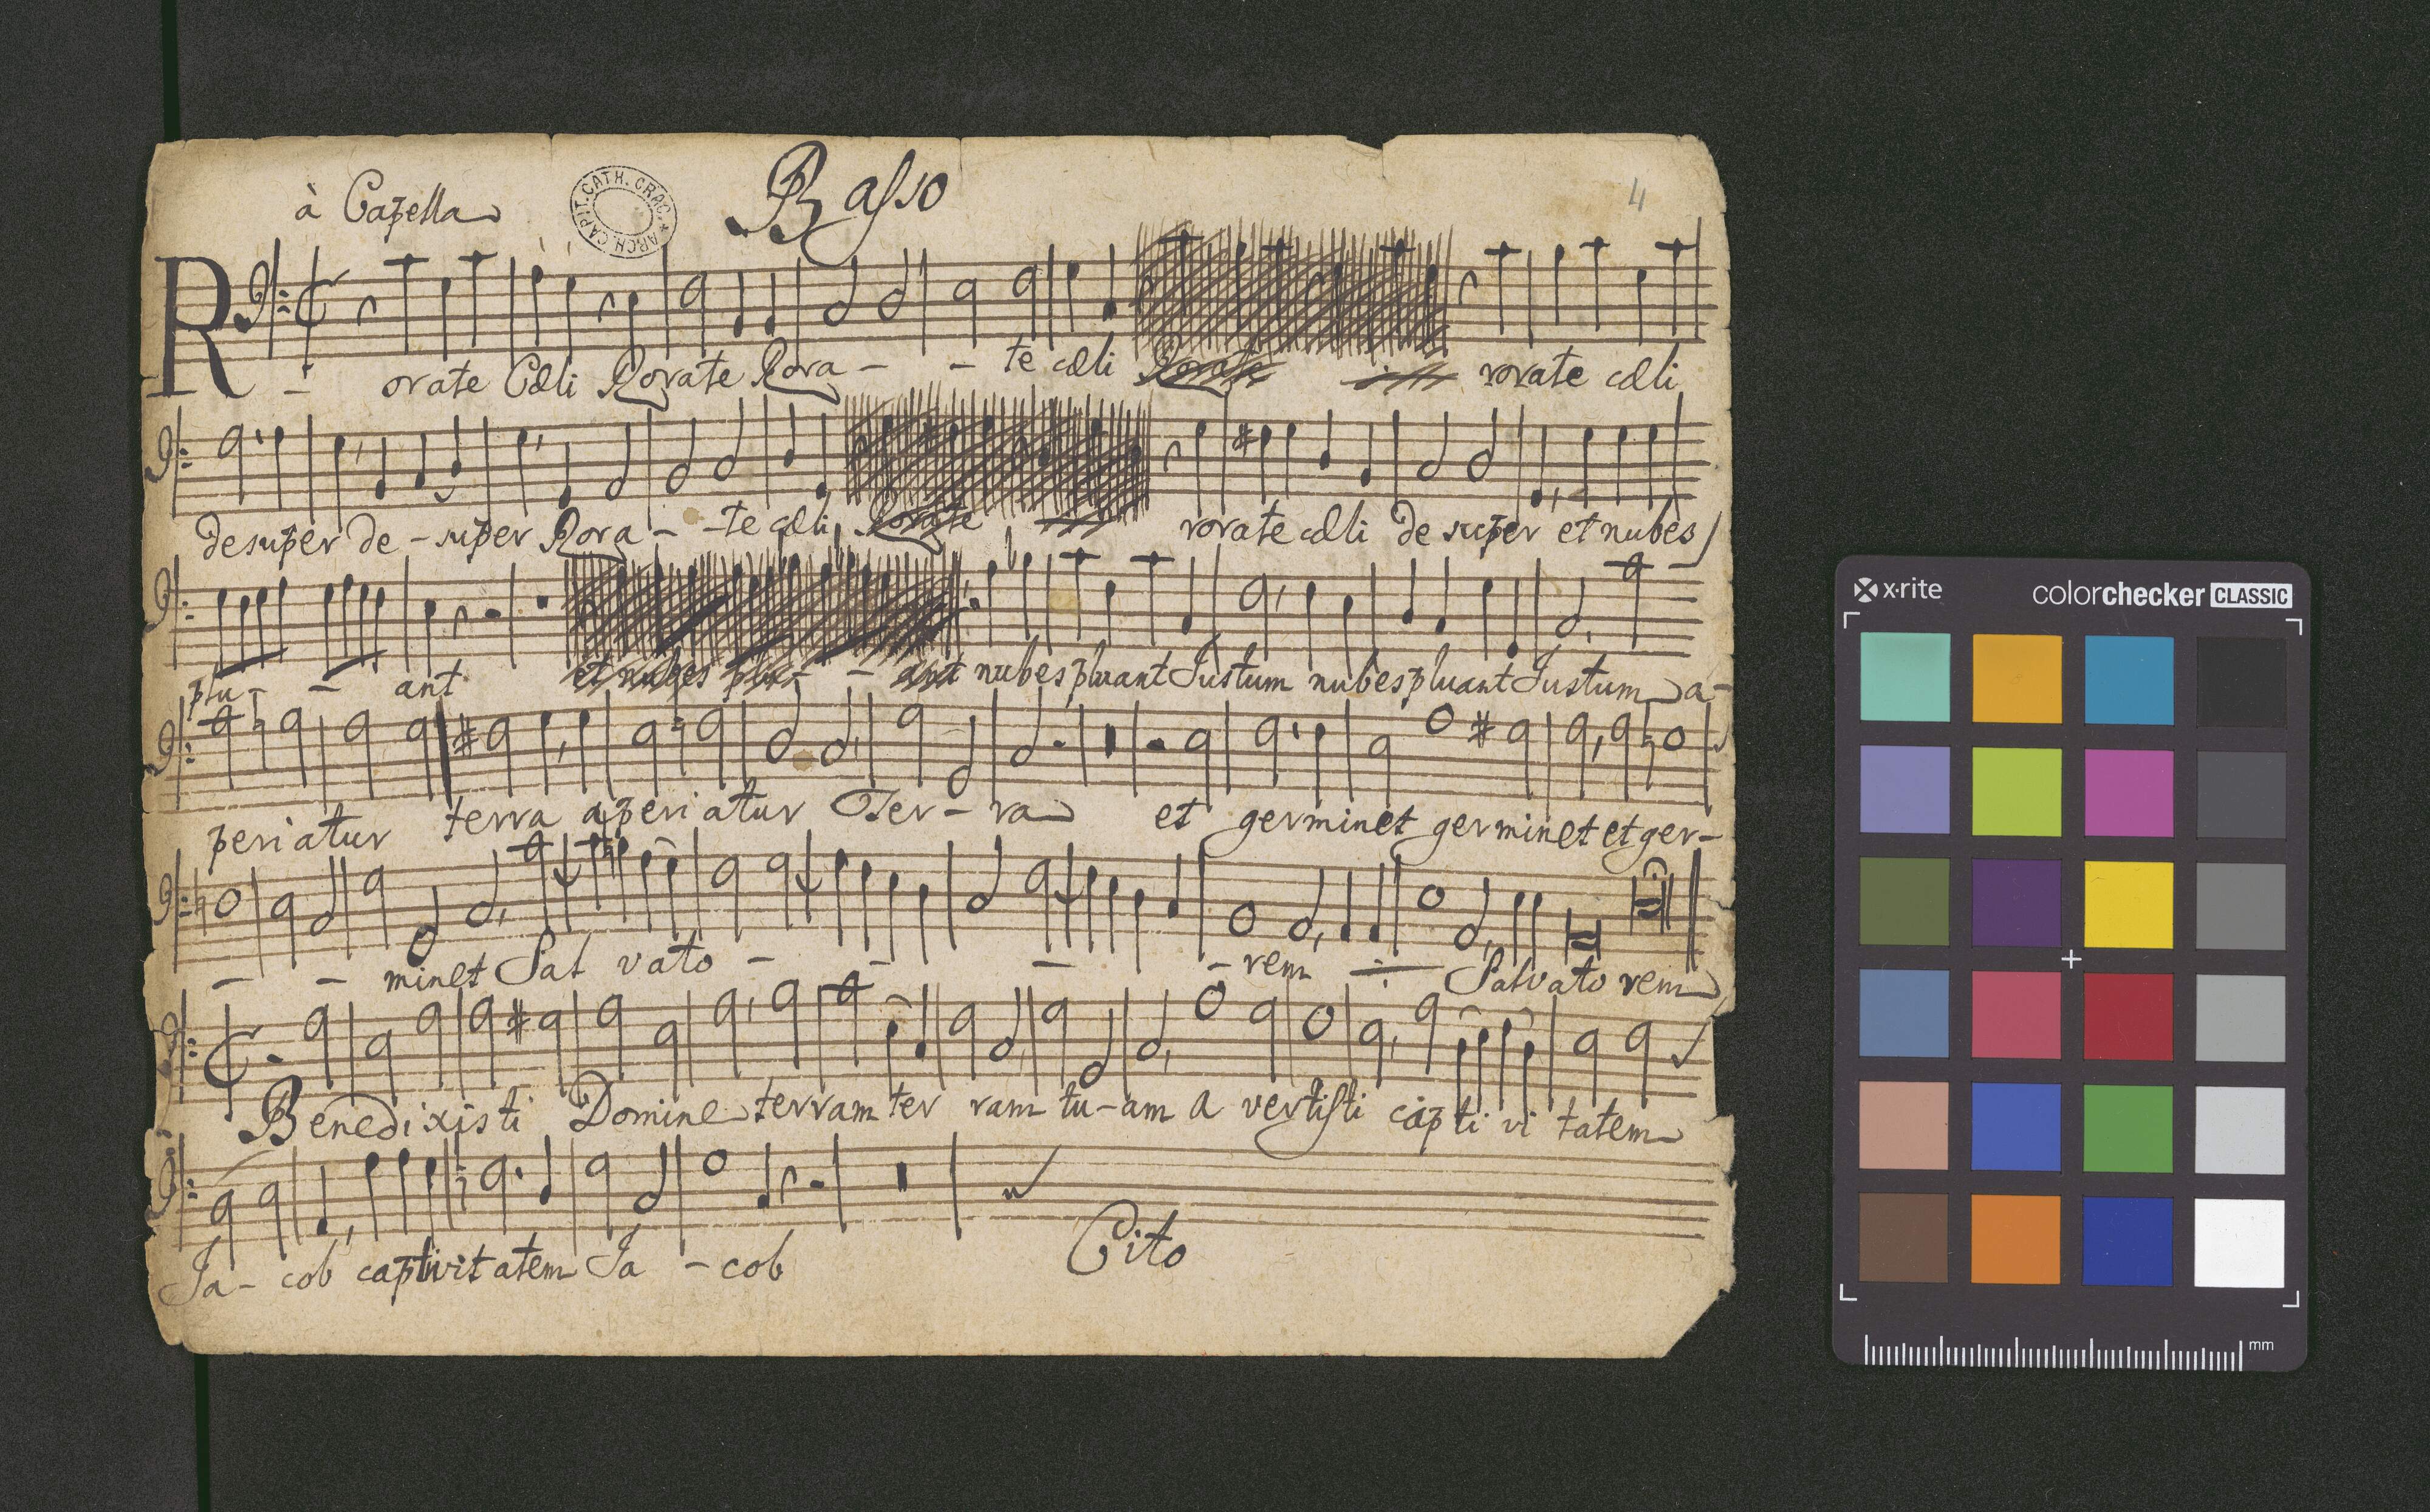 à Capella
Basso
4
ARCH. CAPIT. CATH. CRAC.
Rorate Cæli Rorate Rora - - te cæli Rorate rorate cæli
desuper de - super Rora - - te cæli Rorate rorate cæli de super et nubes
plu - - ant et nubes plu - - ant nubes pluant Justum nubes pluant Justum a-
periatur terra aperiatur Ter - ra et germinet germinet et ger-
- - minet Sal vato - - - - rem Salvato rem
Benedixisti Domine terram ter ram tu - am a vertisti capti vi tatem
Ja - cob captivitatem Ja - cob
Cito
x·rite
colorchecker CLASSIC
mm